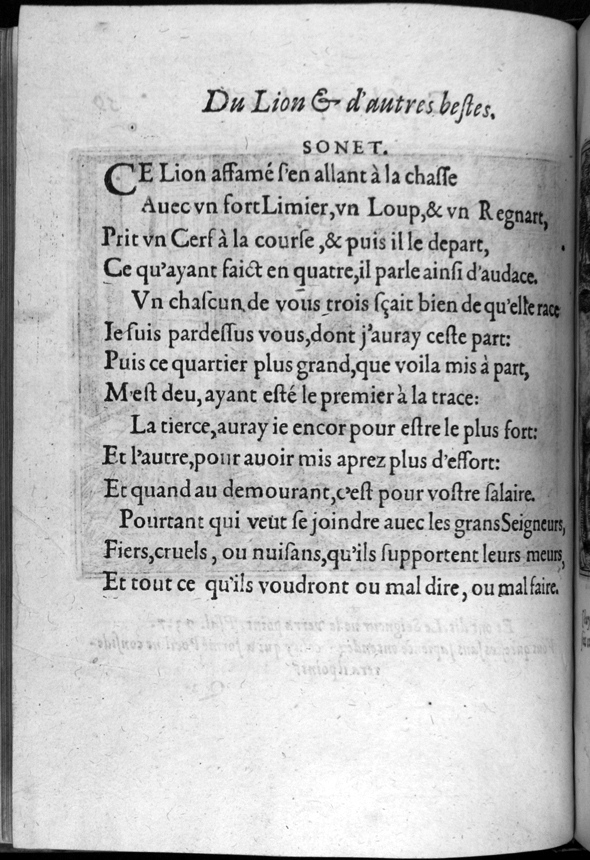 Du Lion & d'autres beſtes.
SONET.
CE Lion affamé ſ'en allant à la chaſſe
Auec vn fort Limier, vn Loup, & vn Regnart,
Prit vn Cerf à la courſe, & puis il le depart,
Ce qu'ayant faict en quatre, il parle ainſi d'audace.
Vn chaſcun de vous trois ſçait bien de qu'elle race
Ie ſuis pardeſſus vous, dont j'auray ceſte part:
Puis ce quartier plus grand, que voila mis à part,
M'eſt deu, ayant eſté le premier à la trace:
La tierce, auray ie encor pour eſtre le plus fort:
Et l'autre, pour auoir mis aprez plus d'effort:
Et quand au demourant, c'eſt pour voſtre ſalaire.
Pourtant qui veut ſe joindre auec les grans Seigneurs,
Fiers, cruels, ou nuiſans, qu'ils ſupportent leurs meurs,
Et tout ce qu'ils voudront ou mal dire, ou mal faire.